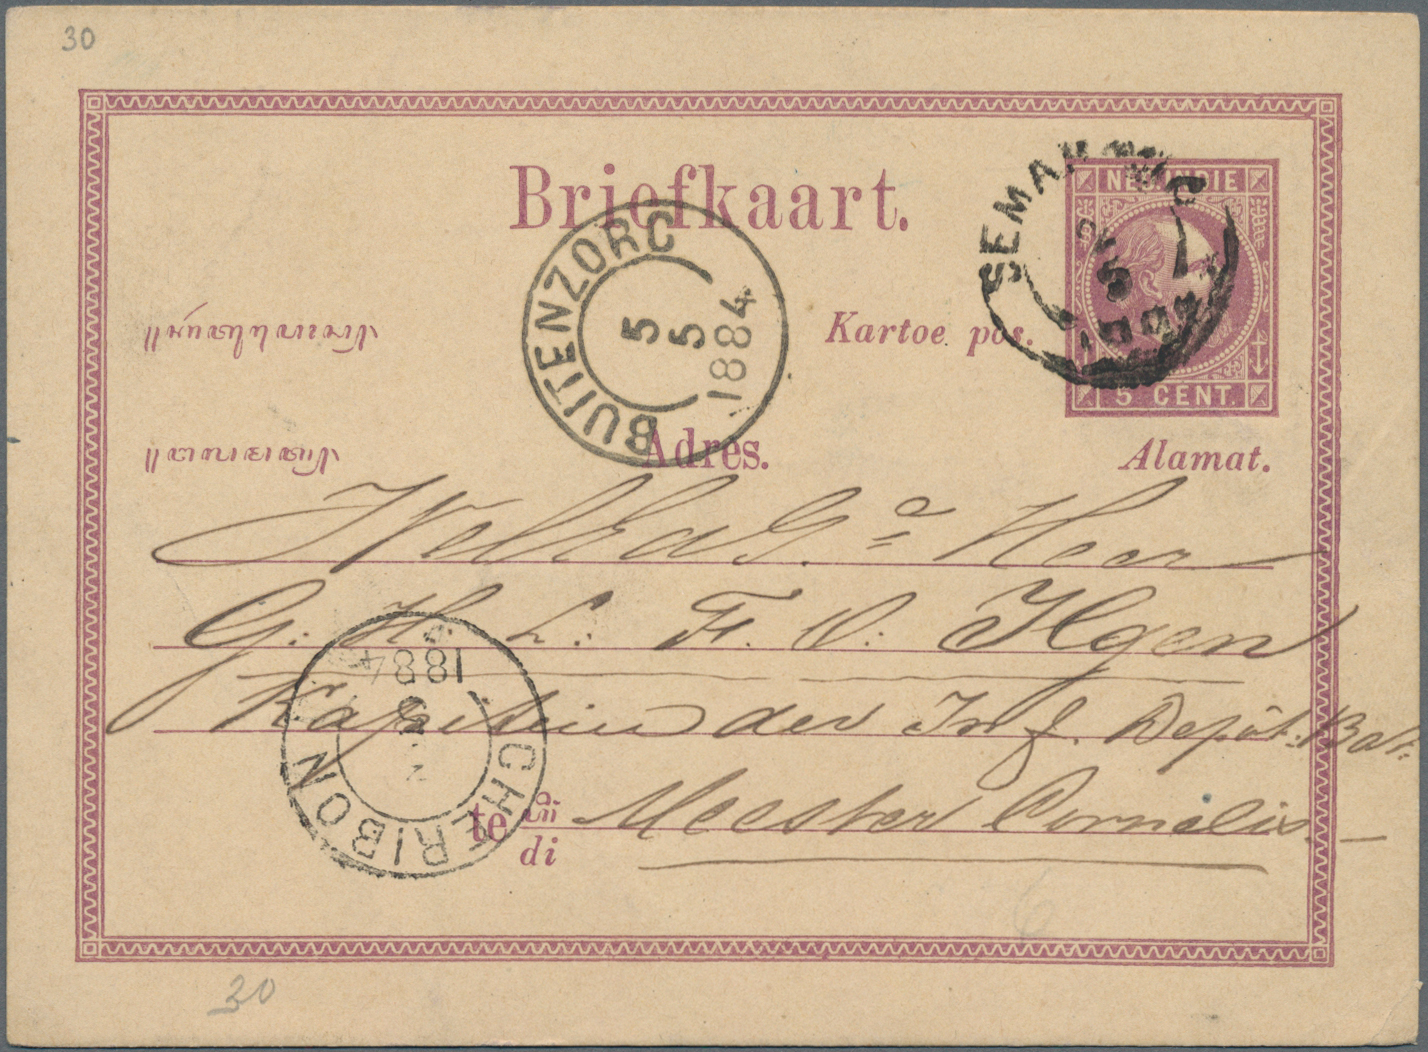 30
Briefkaart.
NED. INDIE
SEMARANG
5 CENT.
BUITENZORG
5
5
1884
Kartoe pos.
Adres.
Alamat.
WelEdelG. Heer
G. H. L. F. v. Ilgen
Kapitein der Inf. Depôt. Bat.
te
di
Meester Cornelis.
CHERIBON
1884
30